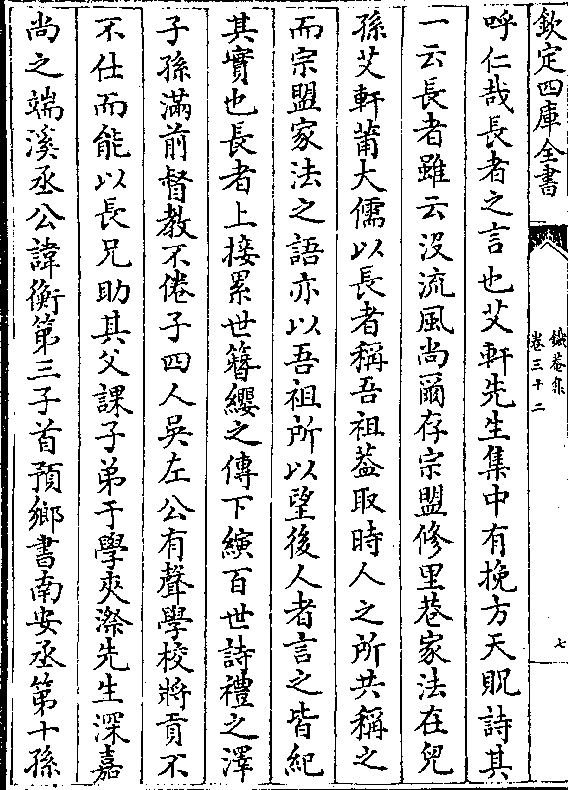 欽定四庫全書
鐵菴集
卷三十二
七
呼仁哉長者之言也艾軒先生集中有挽方天貺詩其
一云長者雖云沒流風尚爾存宗盟修里巷家法在兒
孫艾軒莆大儒以長者稱吾祖葢取時人之所共稱之
而宗盟家法之語亦以吾祖所以望後人者言之皆紀
其實也長者上接累世簪纓之傳下縯百世詩禮之澤
子孫滿前督教不倦子四人吳左公有聲學校將貢不
不仕而能以長兄助其父課子弟于學夾漈先生深嘉
尚之端溪丞公諱衡第三子首預鄉書南安丞第十孫